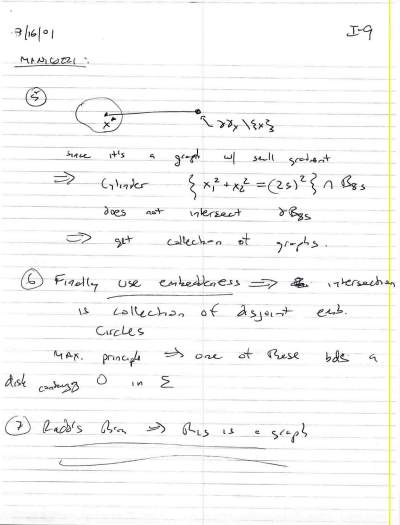 7/16/01 I-9
MANIGUZI :
(5)
x ∂γx \{x}
since it's a graph w/ small gradient
⇒ Cylinder { x₁² + x₂² = (2s)² } ∩ B8s
does not intersect ∂B8s
⇒ get collection of graphs.
(6) Finally use embeddedness ⇒ intersection
is collection of disjoint emb.
circles
Max. principle ⇒ one of these bds a
disk containing 0 in Σ
(7) Rado's thm ⇒ this is a graph